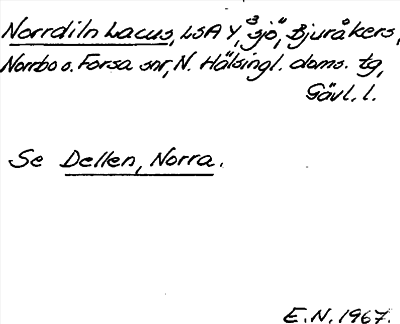 Norrdiln Lacus, LSA Y, "sjö", Bjuråkers,
Norrbo o. Forsa snr, N. Hälsingl. doms. tg,
Gävl. l.
Se Dellen, Norra.
E.N. 1967.